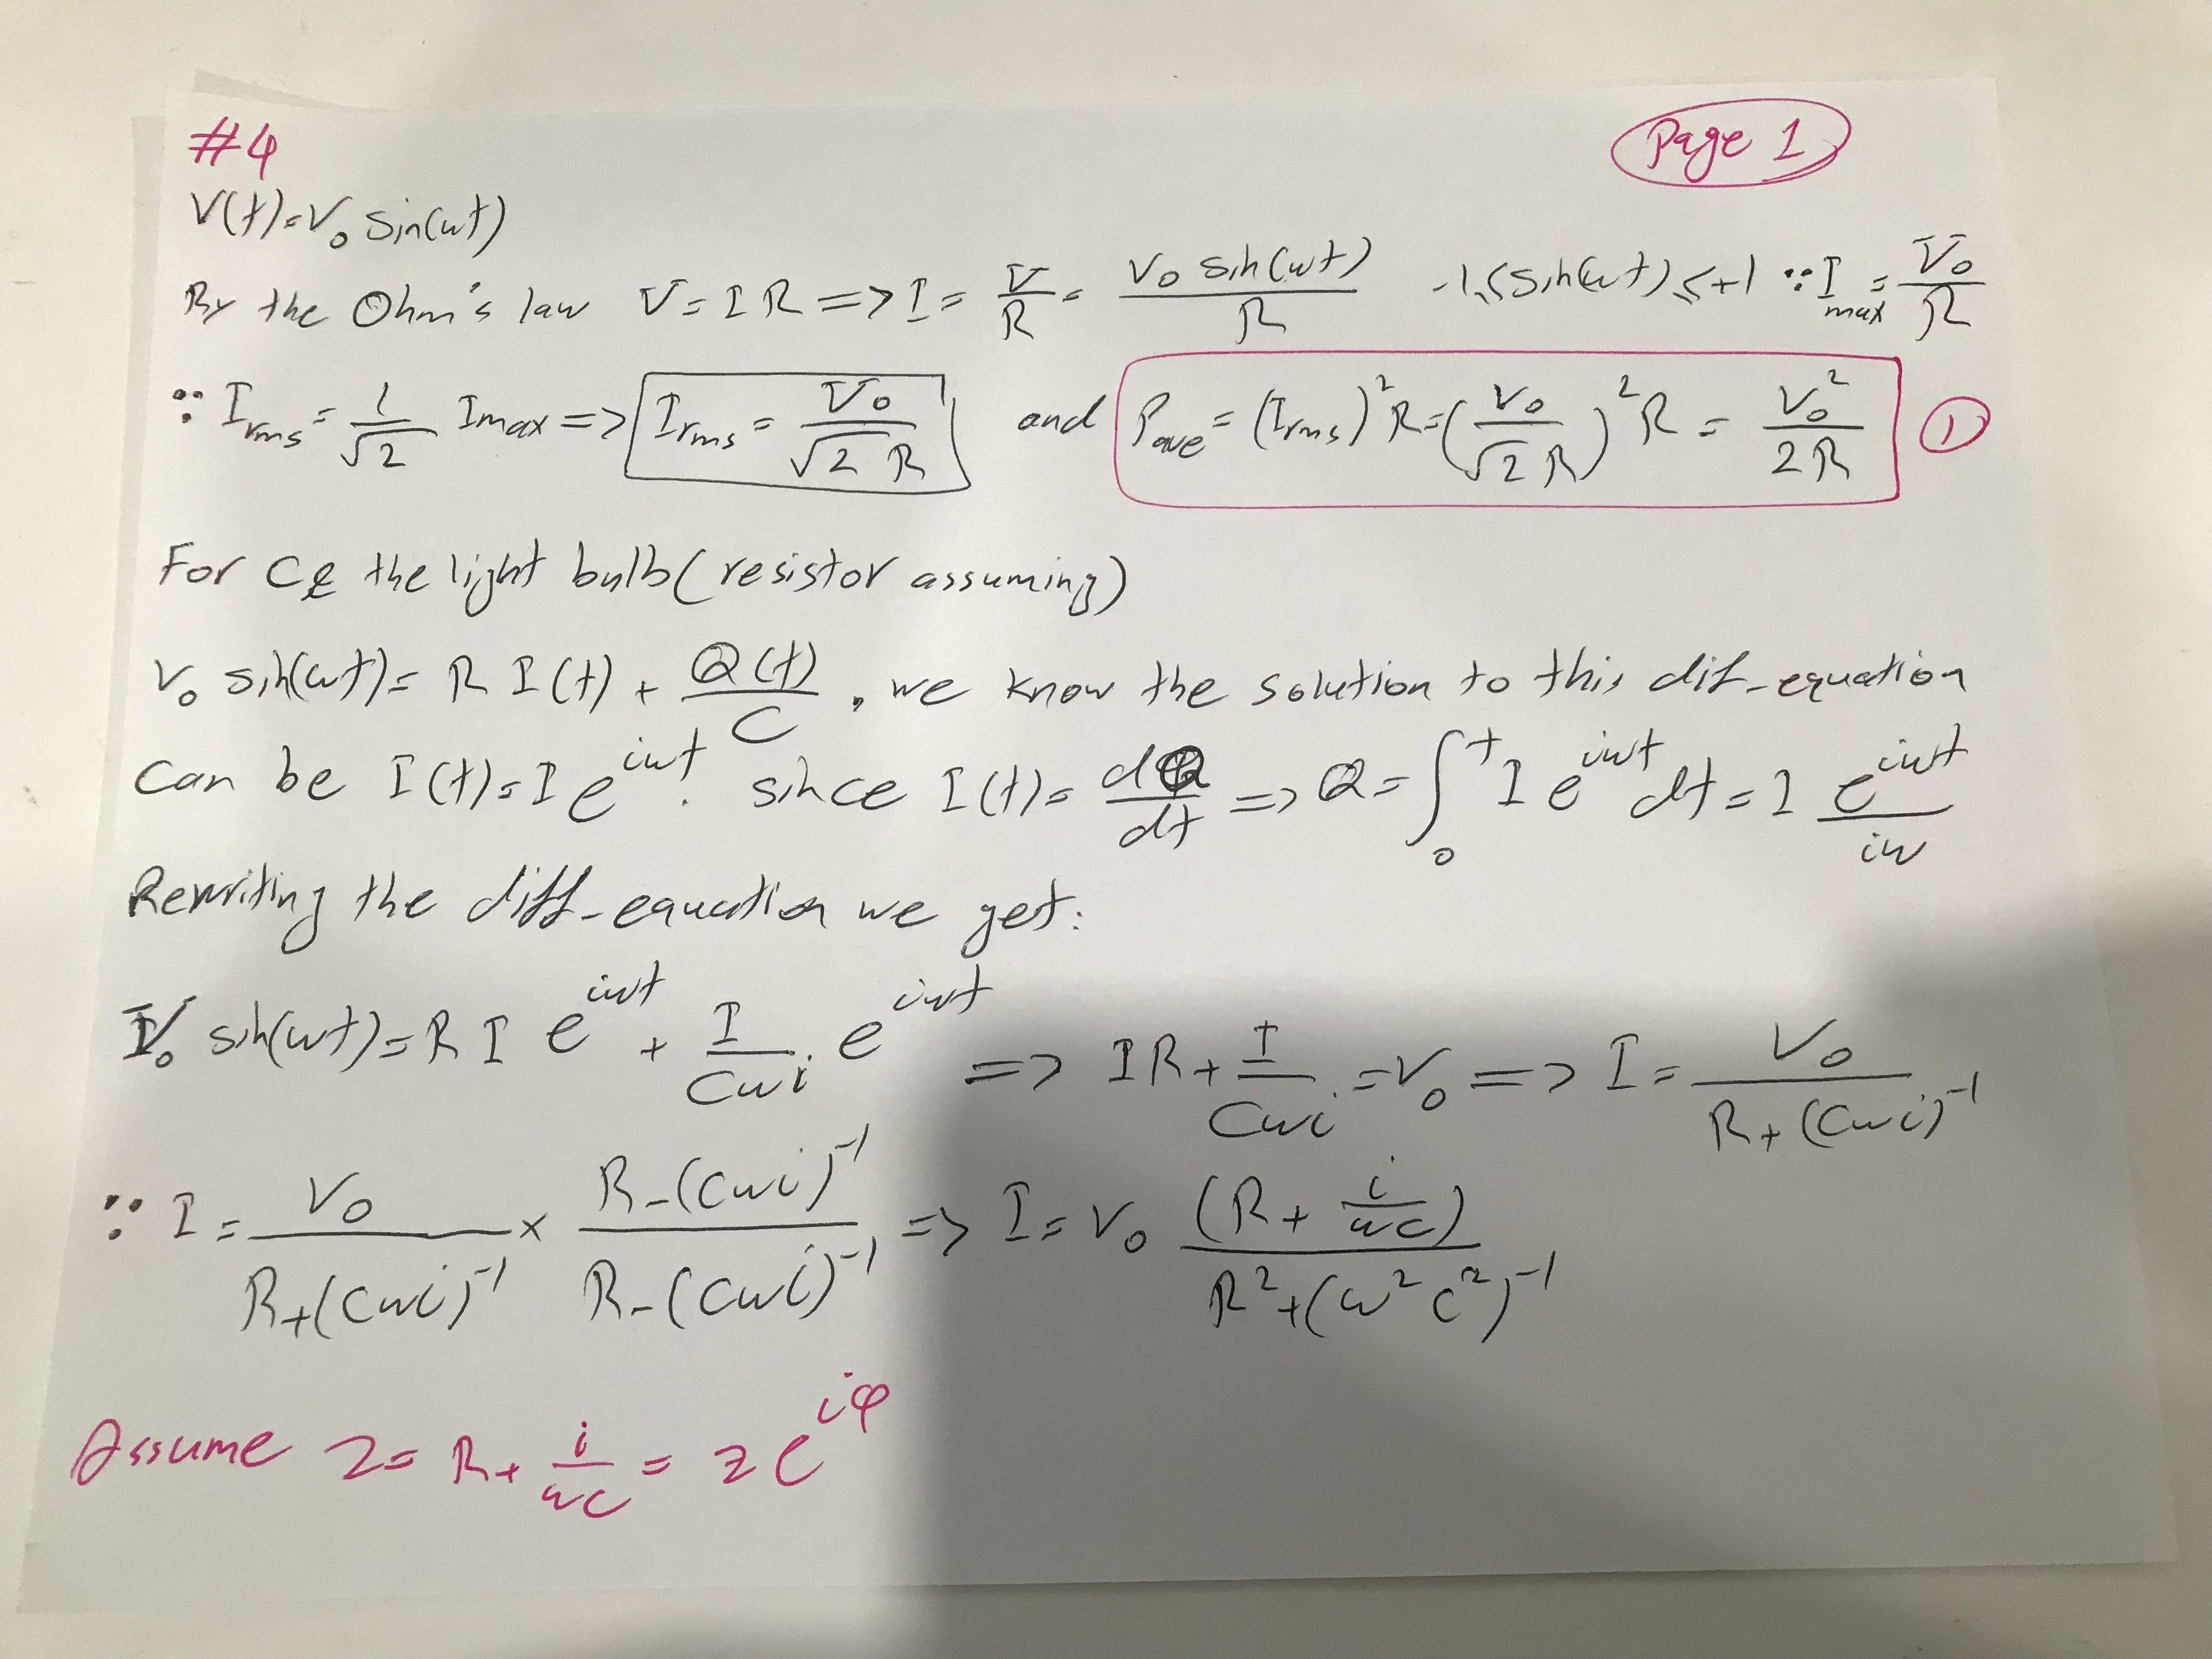 #4
Page 1
V(t)=V₀ sin(ωt)
By the Ohm's law V=IR => I = V/R = V₀ sin(ωt)/R -1≤sin(ωt)≤+1 ∵ I_max = V₀/R
∵ I_rms = 1/√2 Imax => I_rms = V₀/(√2 R) and P_ave = (I_rms)²R = (V₀/(√2 R))²R = V₀²/(2R) ①
For C & the light bulb (resistor assuming)
V₀ sin(ωt) = R I(t) + Q(t)/C , we know the solution to this dif-equation
can be I(t) = I e^{iωt}. since I(t) = dQ/dt => Q = ∫₀^t I e^{iωt} dt = I e^{iωt}/(iω)
Rewriting the diff-equation we get:
V₀ sin(ωt) = R I e^{iωt} + I/(Cωi) e^{iωt} => IR + I/(Cωi) = V₀ => I = V₀/(R+(Cωi)⁻¹)
∵ I = V₀/(R+(Cωi)⁻¹) × (R-(Cωi)⁻¹)/(R-(Cωi)⁻¹) => I = V₀ (R + i/(ωC))/(R²+(ω²C²)⁻¹)
Assume Z = R + i/(ωC) = z e^{iφ}